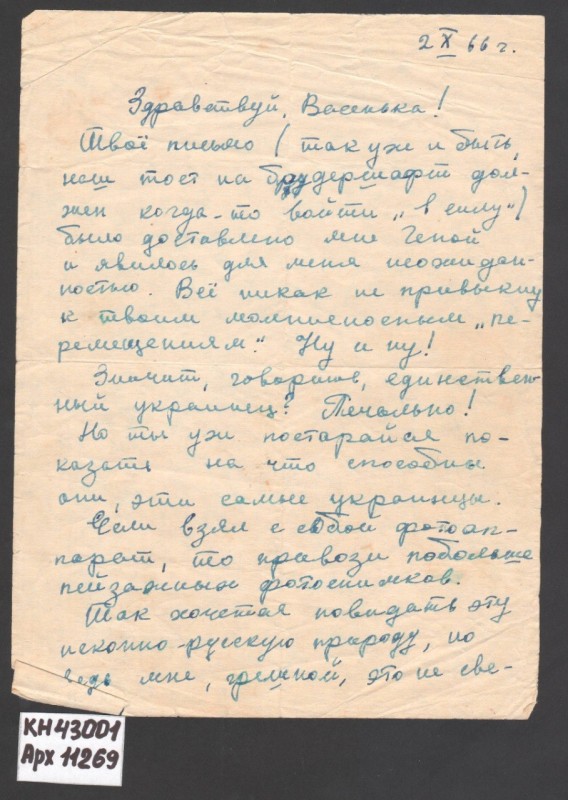 2 X 66 г.
Здравствуй, Васенька!
Твоё письмо (так уж и быть,
наш тост на брудершафт дол-
жен когда-то войти „в силу")
было доставлено мне Геной
и явилось для меня неожидан-
ностью. Всё никак не привыкну
к твоим молниеносным „пе-
ремещениям". Ну и ну!
Значит, говоришь, единствен-
ный украинец? Печально!
Но ты уж постарайся по-
казать на что способны
они, эти самые украинцы.
Если взял с собой фотоап-
парат, то привози побольше
пейзажных фотоснимков.
Так хочется повидать эту
исконно-русскую природу, но
ведь мне, грешной, это не све-
КН43001
Арх 11269